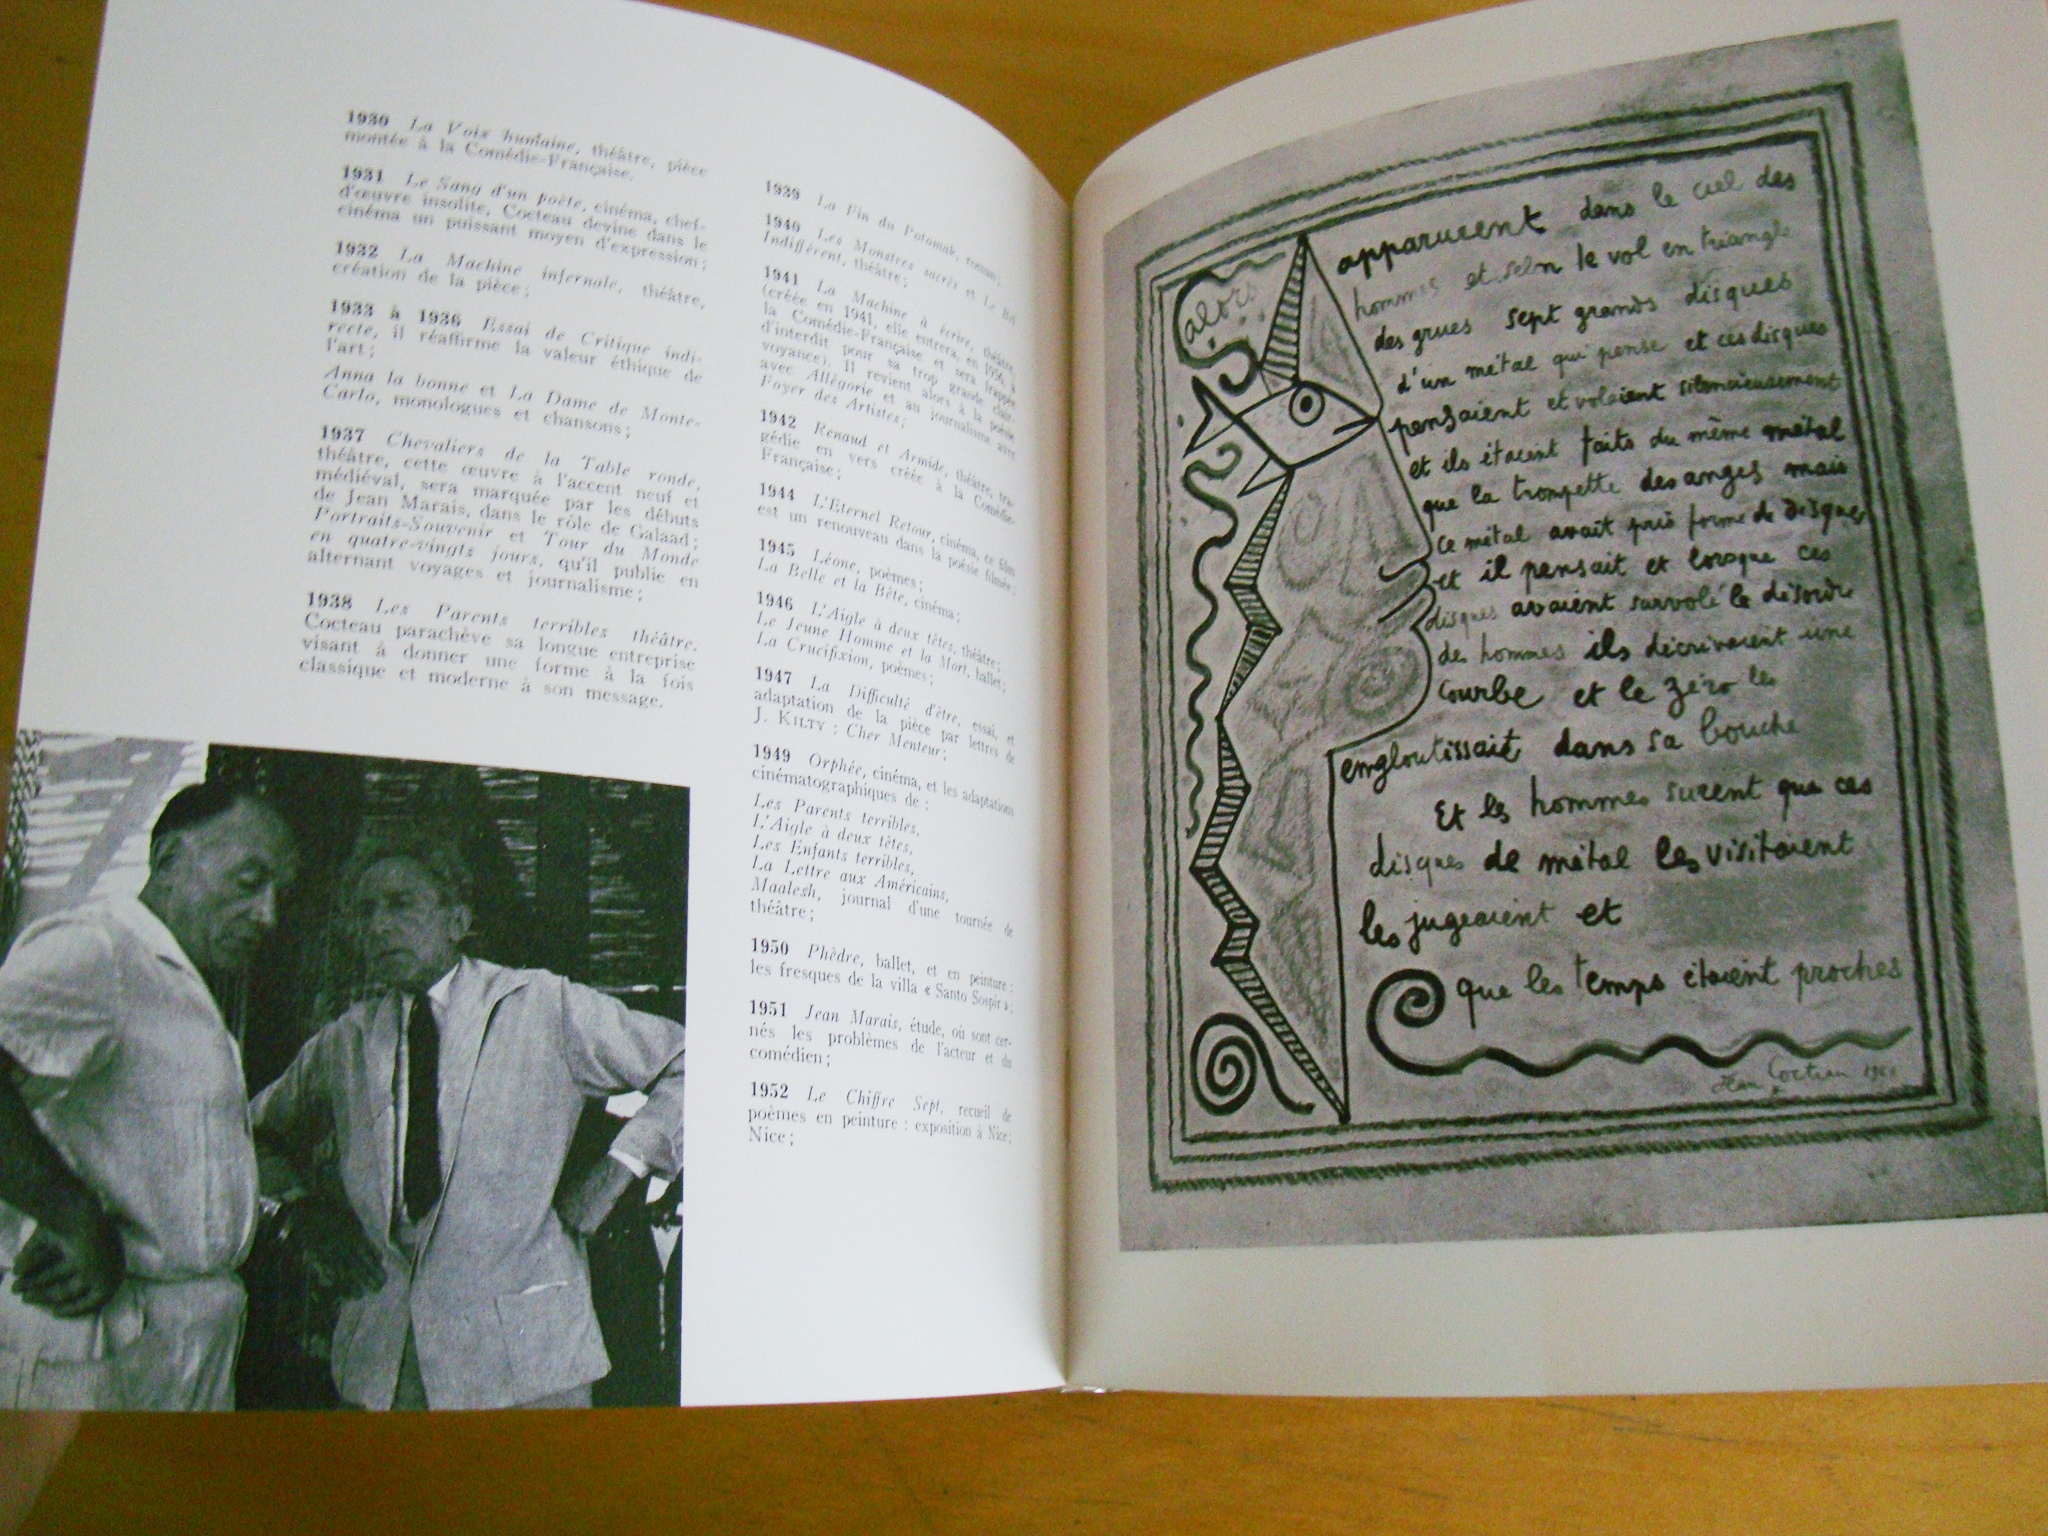 1930 La Voix humaine, théâtre, pièce
montée à la Comédie-Française.
1931 Le Sang d'un poète, cinéma, chef-
d'œuvre insolite, Cocteau devine dans le
cinéma un puissant moyen d'expression ;
1932 La Machine infernale, théâtre,
création de la pièce ;
1933 à 1936 Essai de Critique indi-
recte, il réaffirme la valeur éthique de
l'art ;
Anna la bonne et La Dame de Monte-
Carlo, monologues et chansons ;
1937 Chevaliers de la Table ronde,
théâtre, cette œuvre à l'accent neuf et
médiéval, sera marquée par les débuts
de Jean Marais, dans le rôle de Galaad ;
Portraits-Souvenir et Tour du Monde
en quatre-vingts jours, qu'il publie en
alternant voyages et journalisme ;
1938 Les Parents terribles théâtre.
Cocteau parachève sa longue entreprise
visant à donner une forme à la fois
classique et moderne à son message.
1939 La Fin du Potomak, roman ;
1940 Les Monstres sacrés et Le Bel
Indifférent, théâtre ;
1941 La Machine à écrire, théâtre,
(créée en 1941, elle entrera, en 1956, à
la Comédie-Française et sera frappée
d'interdit pour sa trop grande clair-
voyance). Il revient alors à la poésie
avec Allégorie et au journalisme avec
Foyer des Artistes ;
1942 Renaud et Armide, théâtre, tra-
gédie en vers créée à la Comédie-
Française ;
1944 L'Eternel Retour, cinéma, ce film
est un renouveau dans la poésie filmée ;
1945 Léone, poèmes ;
La Belle et la Bête, cinéma ;
1946 L'Aigle à deux têtes, théâtre ;
Le Jeune Homme et la Mort, ballet ;
La Crucifixion, poèmes ;
1947 La Difficulté d'être, essai, et
adaptation de la pièce par lettres de
J. KILTY : Cher Menteur ;
1949 Orphée, cinéma, et les adaptations
cinématographiques de :
Les Parents terribles,
L'Aigle à deux têtes,
Les Enfants terribles,
La Lettre aux Américains,
Maalesh, journal d'une tournée de
théâtre ;
1950 Phèdre, ballet, et en peinture :
les fresques de la villa « Santo Sospir » ;
1951 Jean Marais, étude, où sont cer-
nés les problèmes de l'acteur et du
comédien ;
1952 Le Chiffre Sept, recueil de
poèmes en peinture : exposition à Nice ;
Nice ;
alors
apparurent dans le ciel des
hommes et selon le vol en triangle
des grues sept grands disques
d'un métal qui pense et ces disques
pensaient et volaient silencieusement
et ils étaient faits du même métal
que la trompette des anges mais
ce métal avait pris forme de disques
et il pensait et lorsque ces
disques avaient survolé le désordre
des hommes ils décrivaient une
courbe et le zéro les
engloutissait dans sa bouche
Et les hommes surent que ces
disques de métal les visitaient
les jugeaient et
que les temps étaient proches
Jean Cocteau